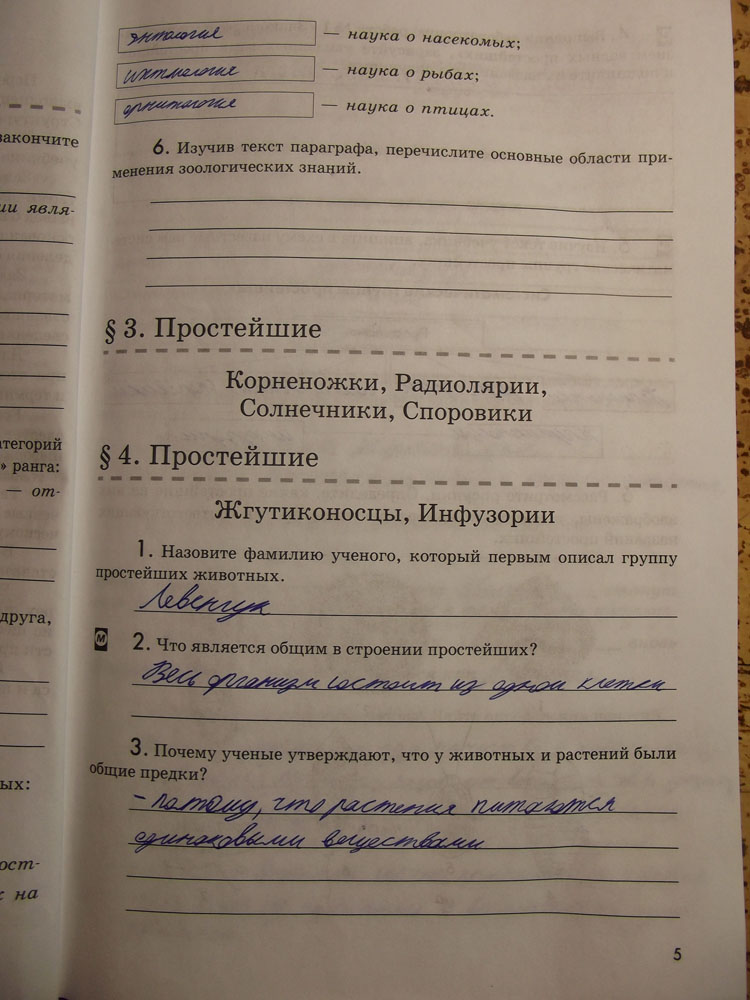 энтология — наука о насекомых;
ихтиология — наука о рыбах;
орнитология — наука о птицах.
закончите
6. Изучив текст параграфа, перечислите основные области при-
менения зоологических знаний.
ии явля-
§ 3. Простейшие
Корненожки, Радиолярии,
Солнечники, Споровики
атегорий
» ранга:
§ 4. Простейшие
— от-
Жгутиконосцы, Инфузории
1. Назовите фамилию ученого, который первым описал группу
простейших животных.
Левенгук
друга,
М 2. Что является общим в строении простейших?
Весь организм состоит из одной клетки
3. Почему ученые утверждают, что у животных и растений были
общие предки?
ых:
- потому, что растения питаются
одинаковыми веществами
ост-
на
5